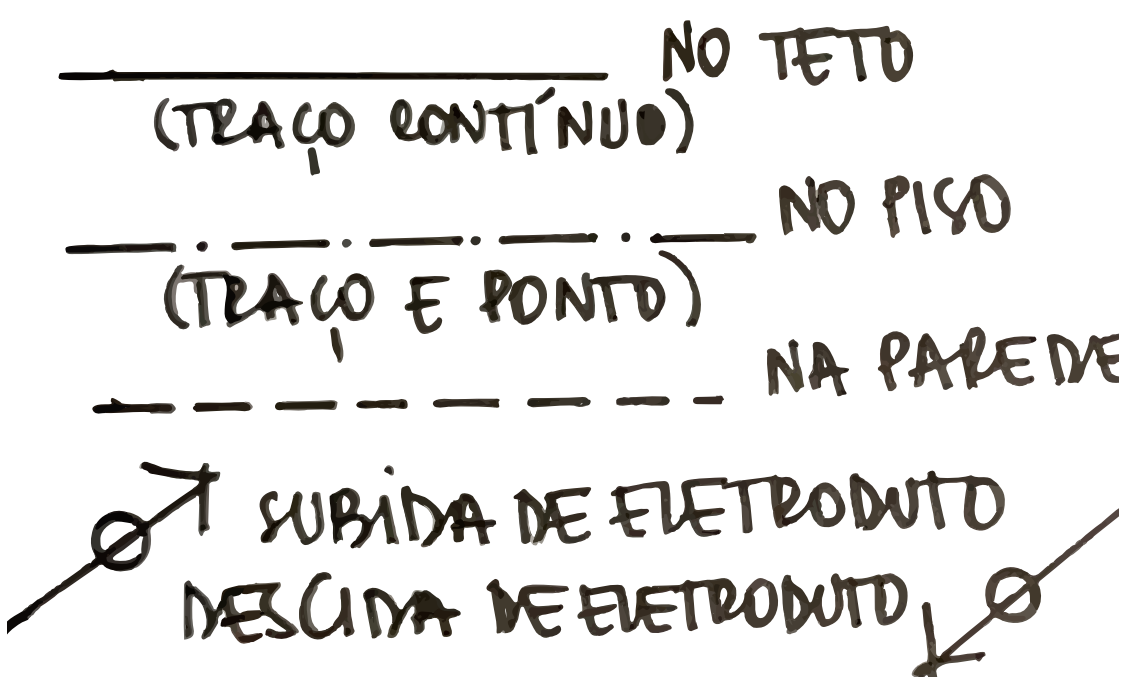 NO TETO
(TRAÇO CONTÍNUO)
NO PISO
(TRAÇO E PONTO)
NA PAREDE
SUBIDA DE ELETRODUTO
DESCIDA DE ELETRODUTO